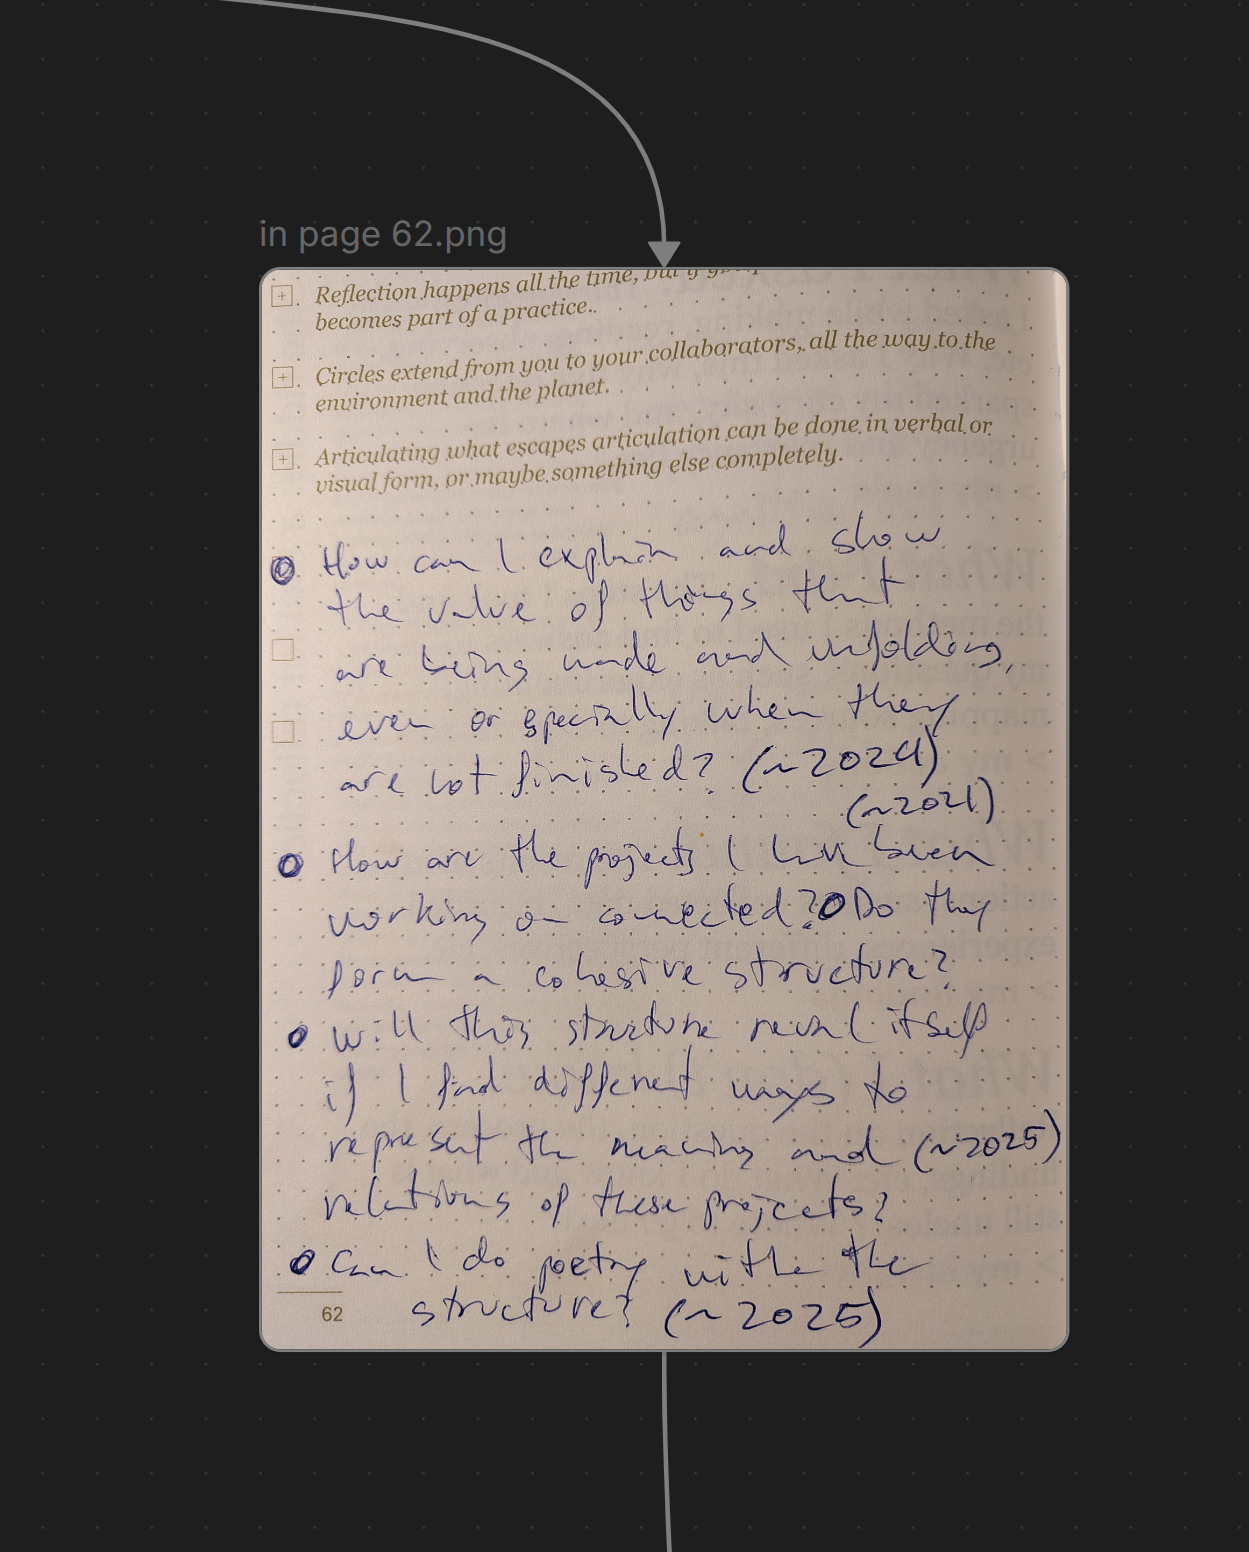 in page 62.png
Reflection happens all the time, but if
becomes part of a practice.
Circles extend from you to your collaborators, all the way to the
environment and the planet.
Articulating what escapes articulation can be done in verbal or
visual form, or maybe something else completely.
How can I explain and show
the value of things that
are being made and unfolding,
even or specially when they
are not finished? (~2024)
(~2021)
How are the projects I have been
working on connected? Do they
form a cohesive structure?
Will this structure reveal itself
if I find different ways to
represent the meaning and (~2025)
relations of these projects?
Can I do poetry withe the
structure? (~2025)
62